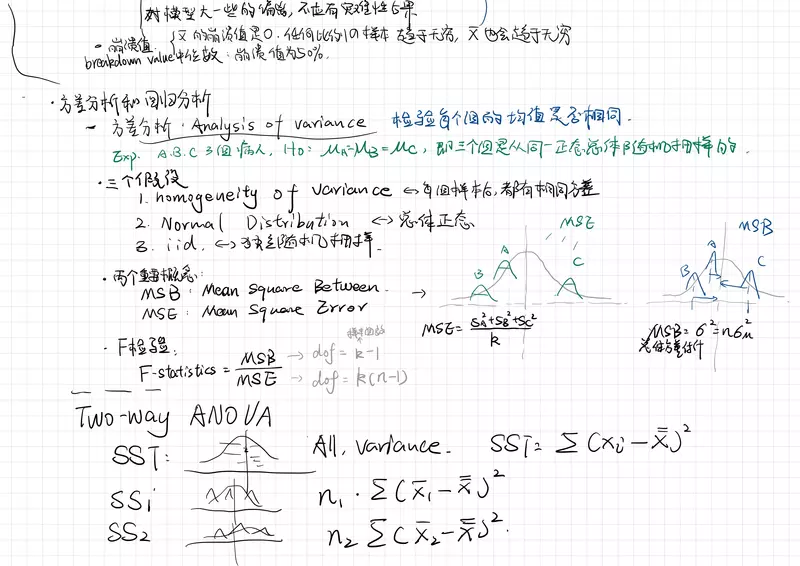 对模型大一些的偏离,不应有灾难性后果
· 崩溃值 { x̄ 的崩溃值是0. 任何比例的样本趋于无穷, x̄ 也会趋于无穷
breakdown value 中位数: 崩溃值为50%.
· 方差分析和回归分析
- 方差分析 · Analysis of variance 检验每个组的均值是否相同.
Exp. A.B.C 3组病人, H0: μA=μB=μC, 即三个组是从同一正态总体随机抽样的.
· 三个假设
1. homogeneity of variance ↔ 每组样本, 都有相同方差
2. Normal Distribution ↔ 总体正态
3. iid. ↔ 随机抽样.
· 两个重要概念:
MSB: Mean Square Between.
MSE: Mean Square Error →
MSE
A
B
C
MSE = (SA²+SB²+SC²)/k
MSB
A
B
C
MSB = σ² = nσx̄²
总体方差估计
· F检验:
F-statistics = MSB/MSE
→ dof = k-1
样本组数
→ dof = k(n-1)
Two-way ANOVA
SST: All variance. SST = Σ(xi - x̿)²
SS1 n1 · Σ(x̄1 - x̿)²
SS2 n2 Σ(x̄2 - x̿)².